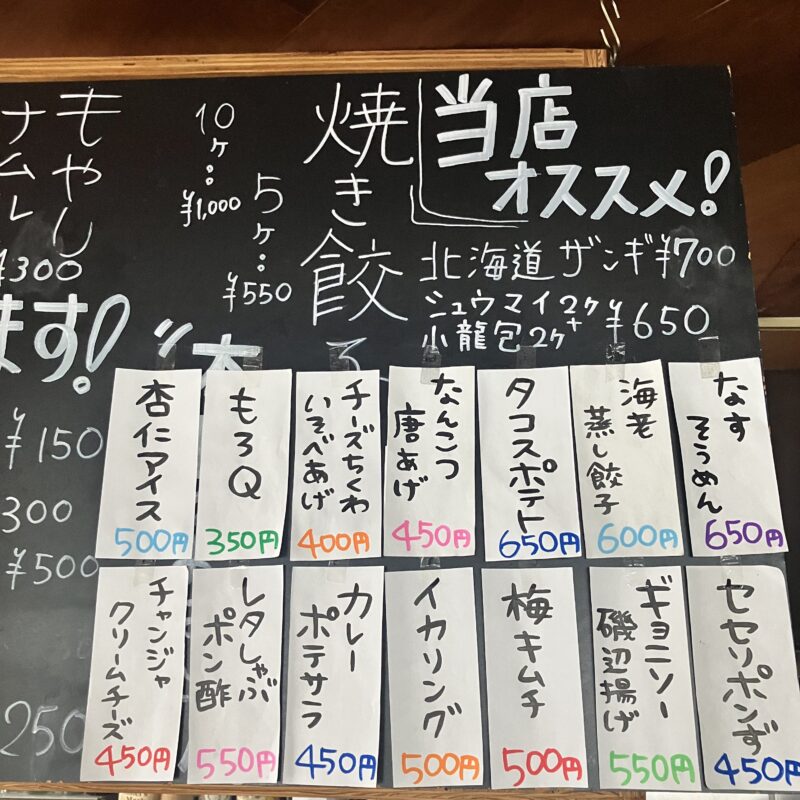 当店
オススメ!
北海道ザンギ¥700
シュウマイ2ケ+
小龍包2ケ
¥650
焼き餃子
5ケ:
¥550
10
ケ:
¥1,000
もやし
ナムル
¥300
ます!
¥150
300
¥500
250
なす
そうめん
650円
海老
蒸し餃子
600円
タコスポテト
650円
なんこつ
唐あげ
450円
チーズちくわ
いそべあげ
400円
もろQ
350円
杏仁アイス
500円
セセリポンず
450円
ギョニソー
磯辺揚げ
550円
梅キムチ
500円
イカリング
500円
カレー
ポテサラ
450円
レタしゃぶ
ポン酢
550円
チャンジャ
クリームチーズ
450円